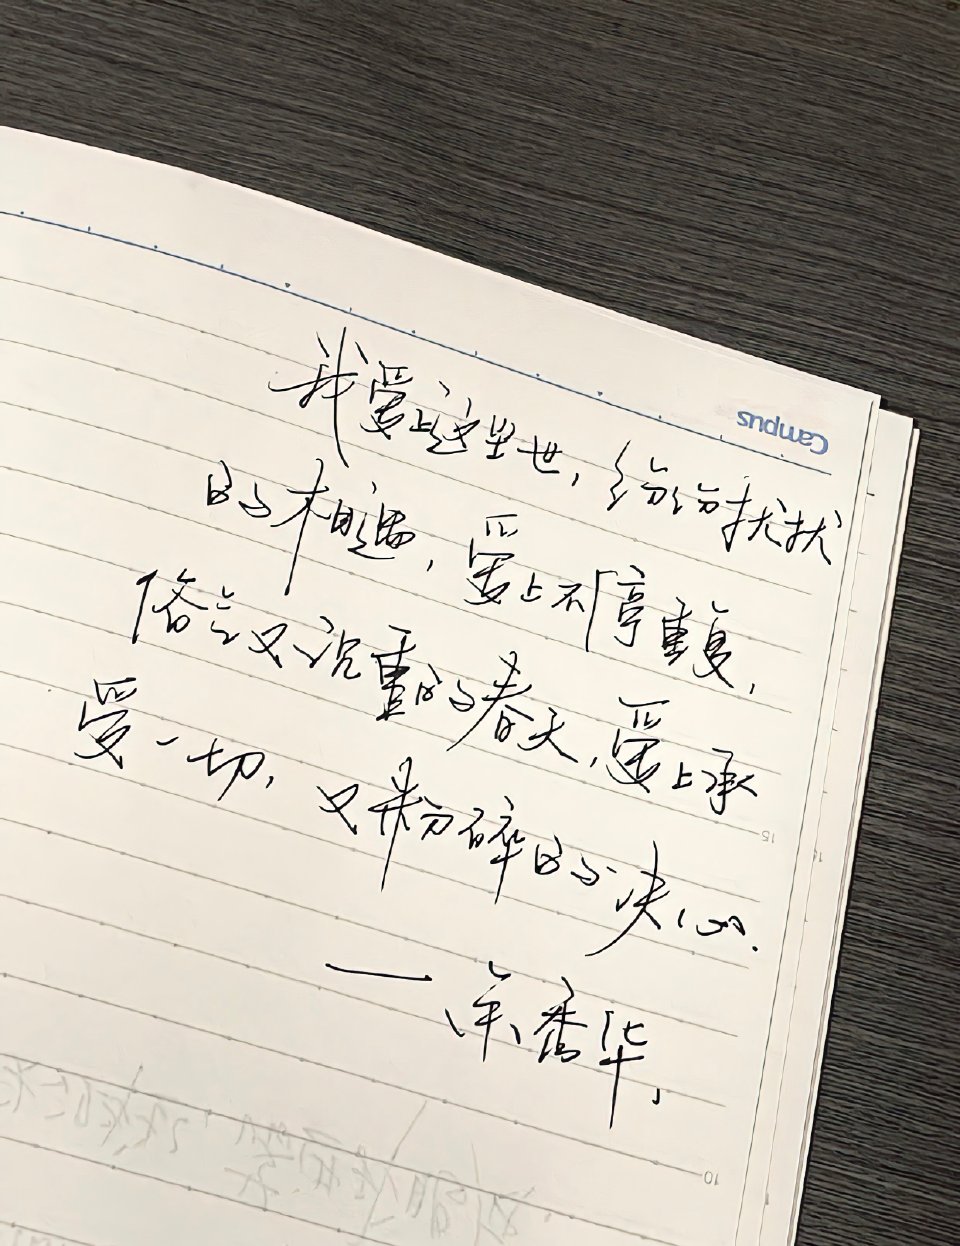 Campus
我爱上这尘世，纷纷扰扰
的相遇，爱上不停重复，
俗气又沉重的春天，爱上承
受一切，又粉碎的决心.
15
—余秀华.
10